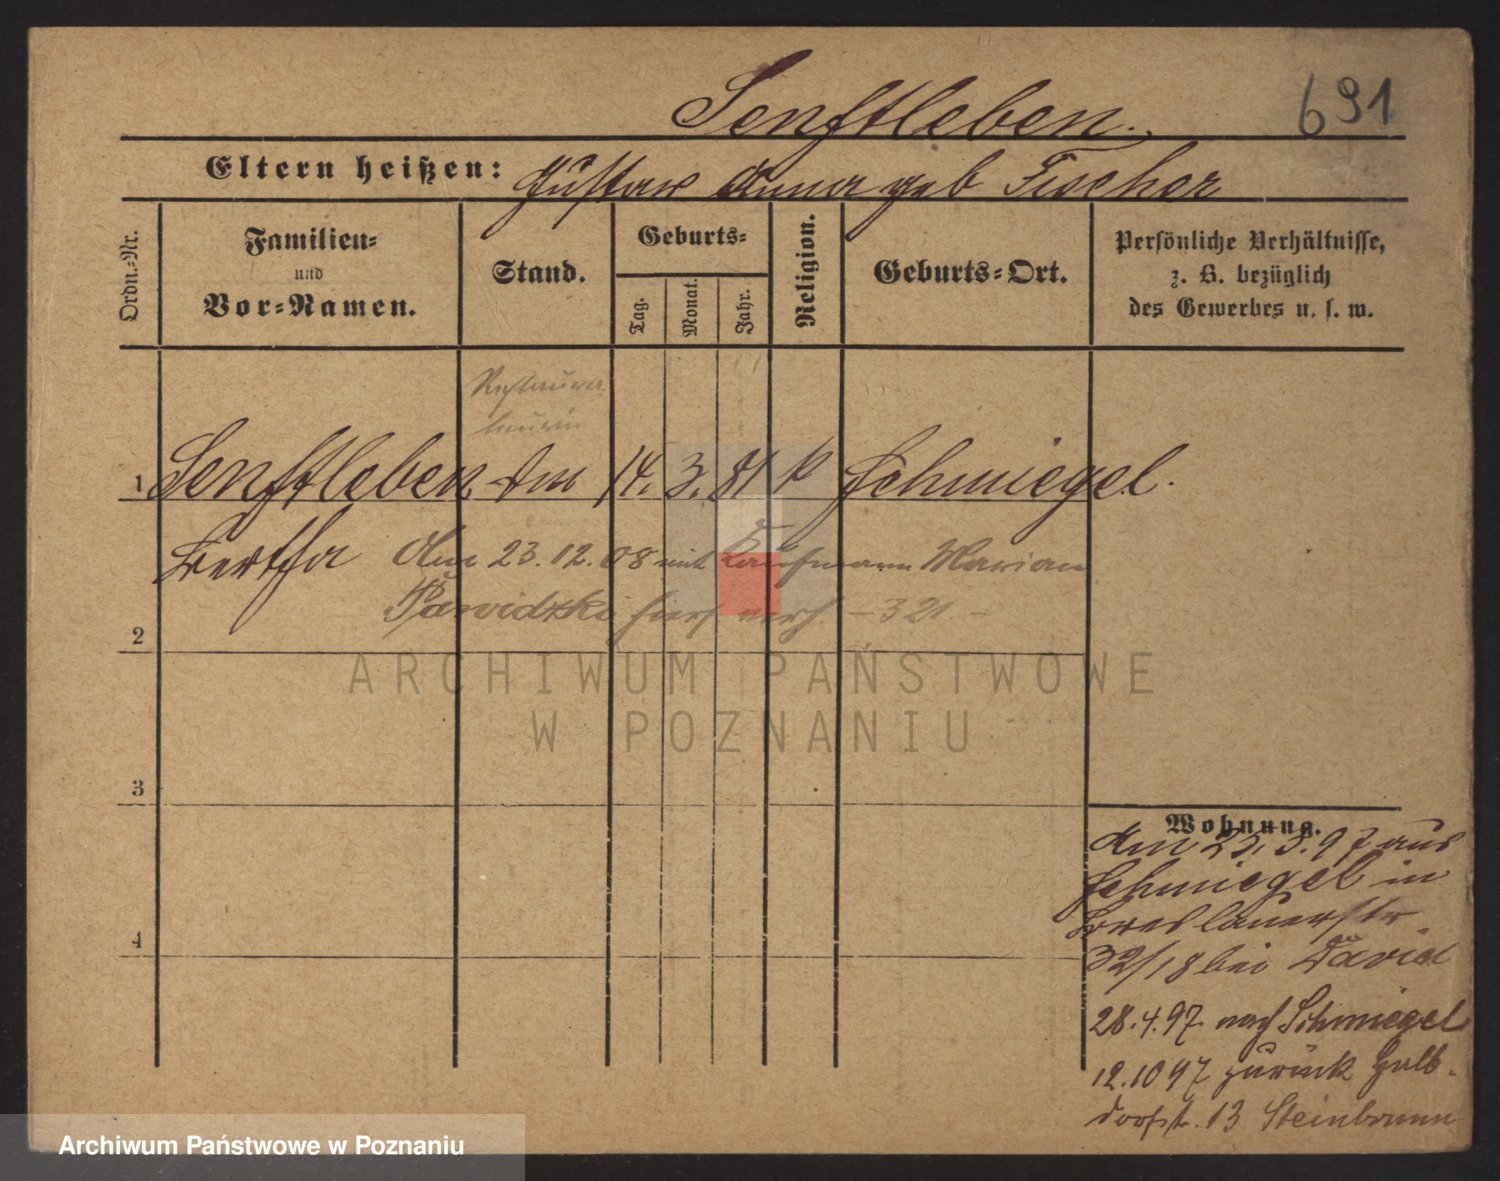 Senftleben.
691
Eltern heißen: Gustav Anna geb Fischer
Ordn.-Nr.
Familien-
und
Vor-Namen.
Stand.
Geburts-
Tag.
Monat.
Jahr.
Religion.
Geburts-Ort.
Persönliche Verhältnisse,
z. B. bezüglich
des Gewerbes u. s. w.
1 Senftleben 14. 3. 81 k Schmiegel.
Bertha
Am 23.12.08 mit Kaufmann Marian
hier verh. - 321 -
2
3
4
Wohnung.
aus
Schmiegel in
Breslauerstr
32/18 bei David
28.4.97 nach Schmiegel
12.10 97 zurück Halb-
dorfst. 13 Steinbrunn
ARCHIWUM PAŃSTWOWE
W POZNANIU
Archiwum Państwowe w Poznaniu